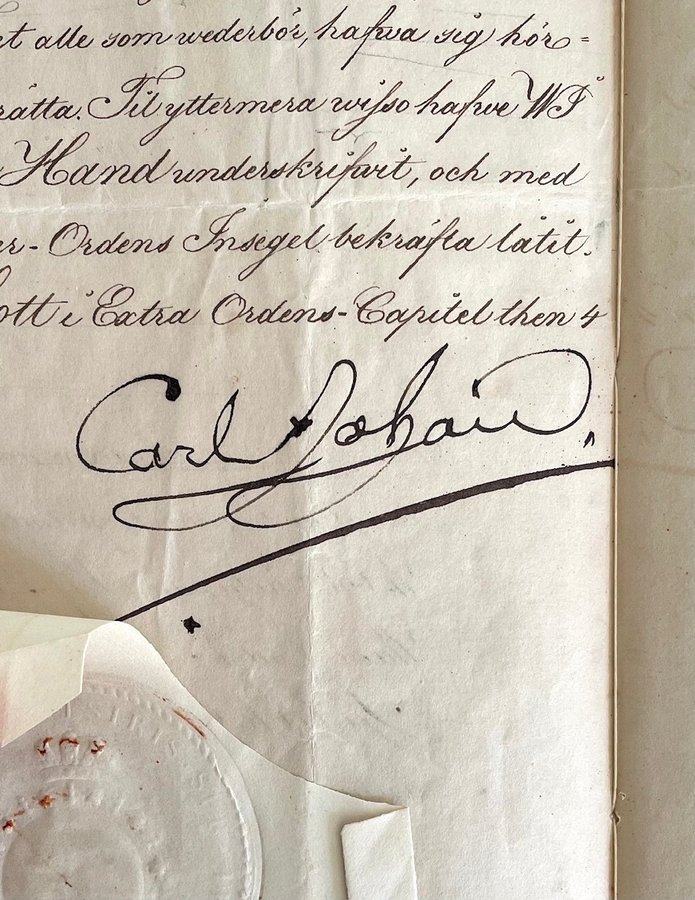 alle som wederbör, hafwa sig hör=
rätta. Til yttermera wisso hafwe WJ
Hand underskrifwit, och med
er-Ordens Insegel bekräfta låtit.
ott i Extra Ordens-Capitel then 4
Carl Johan